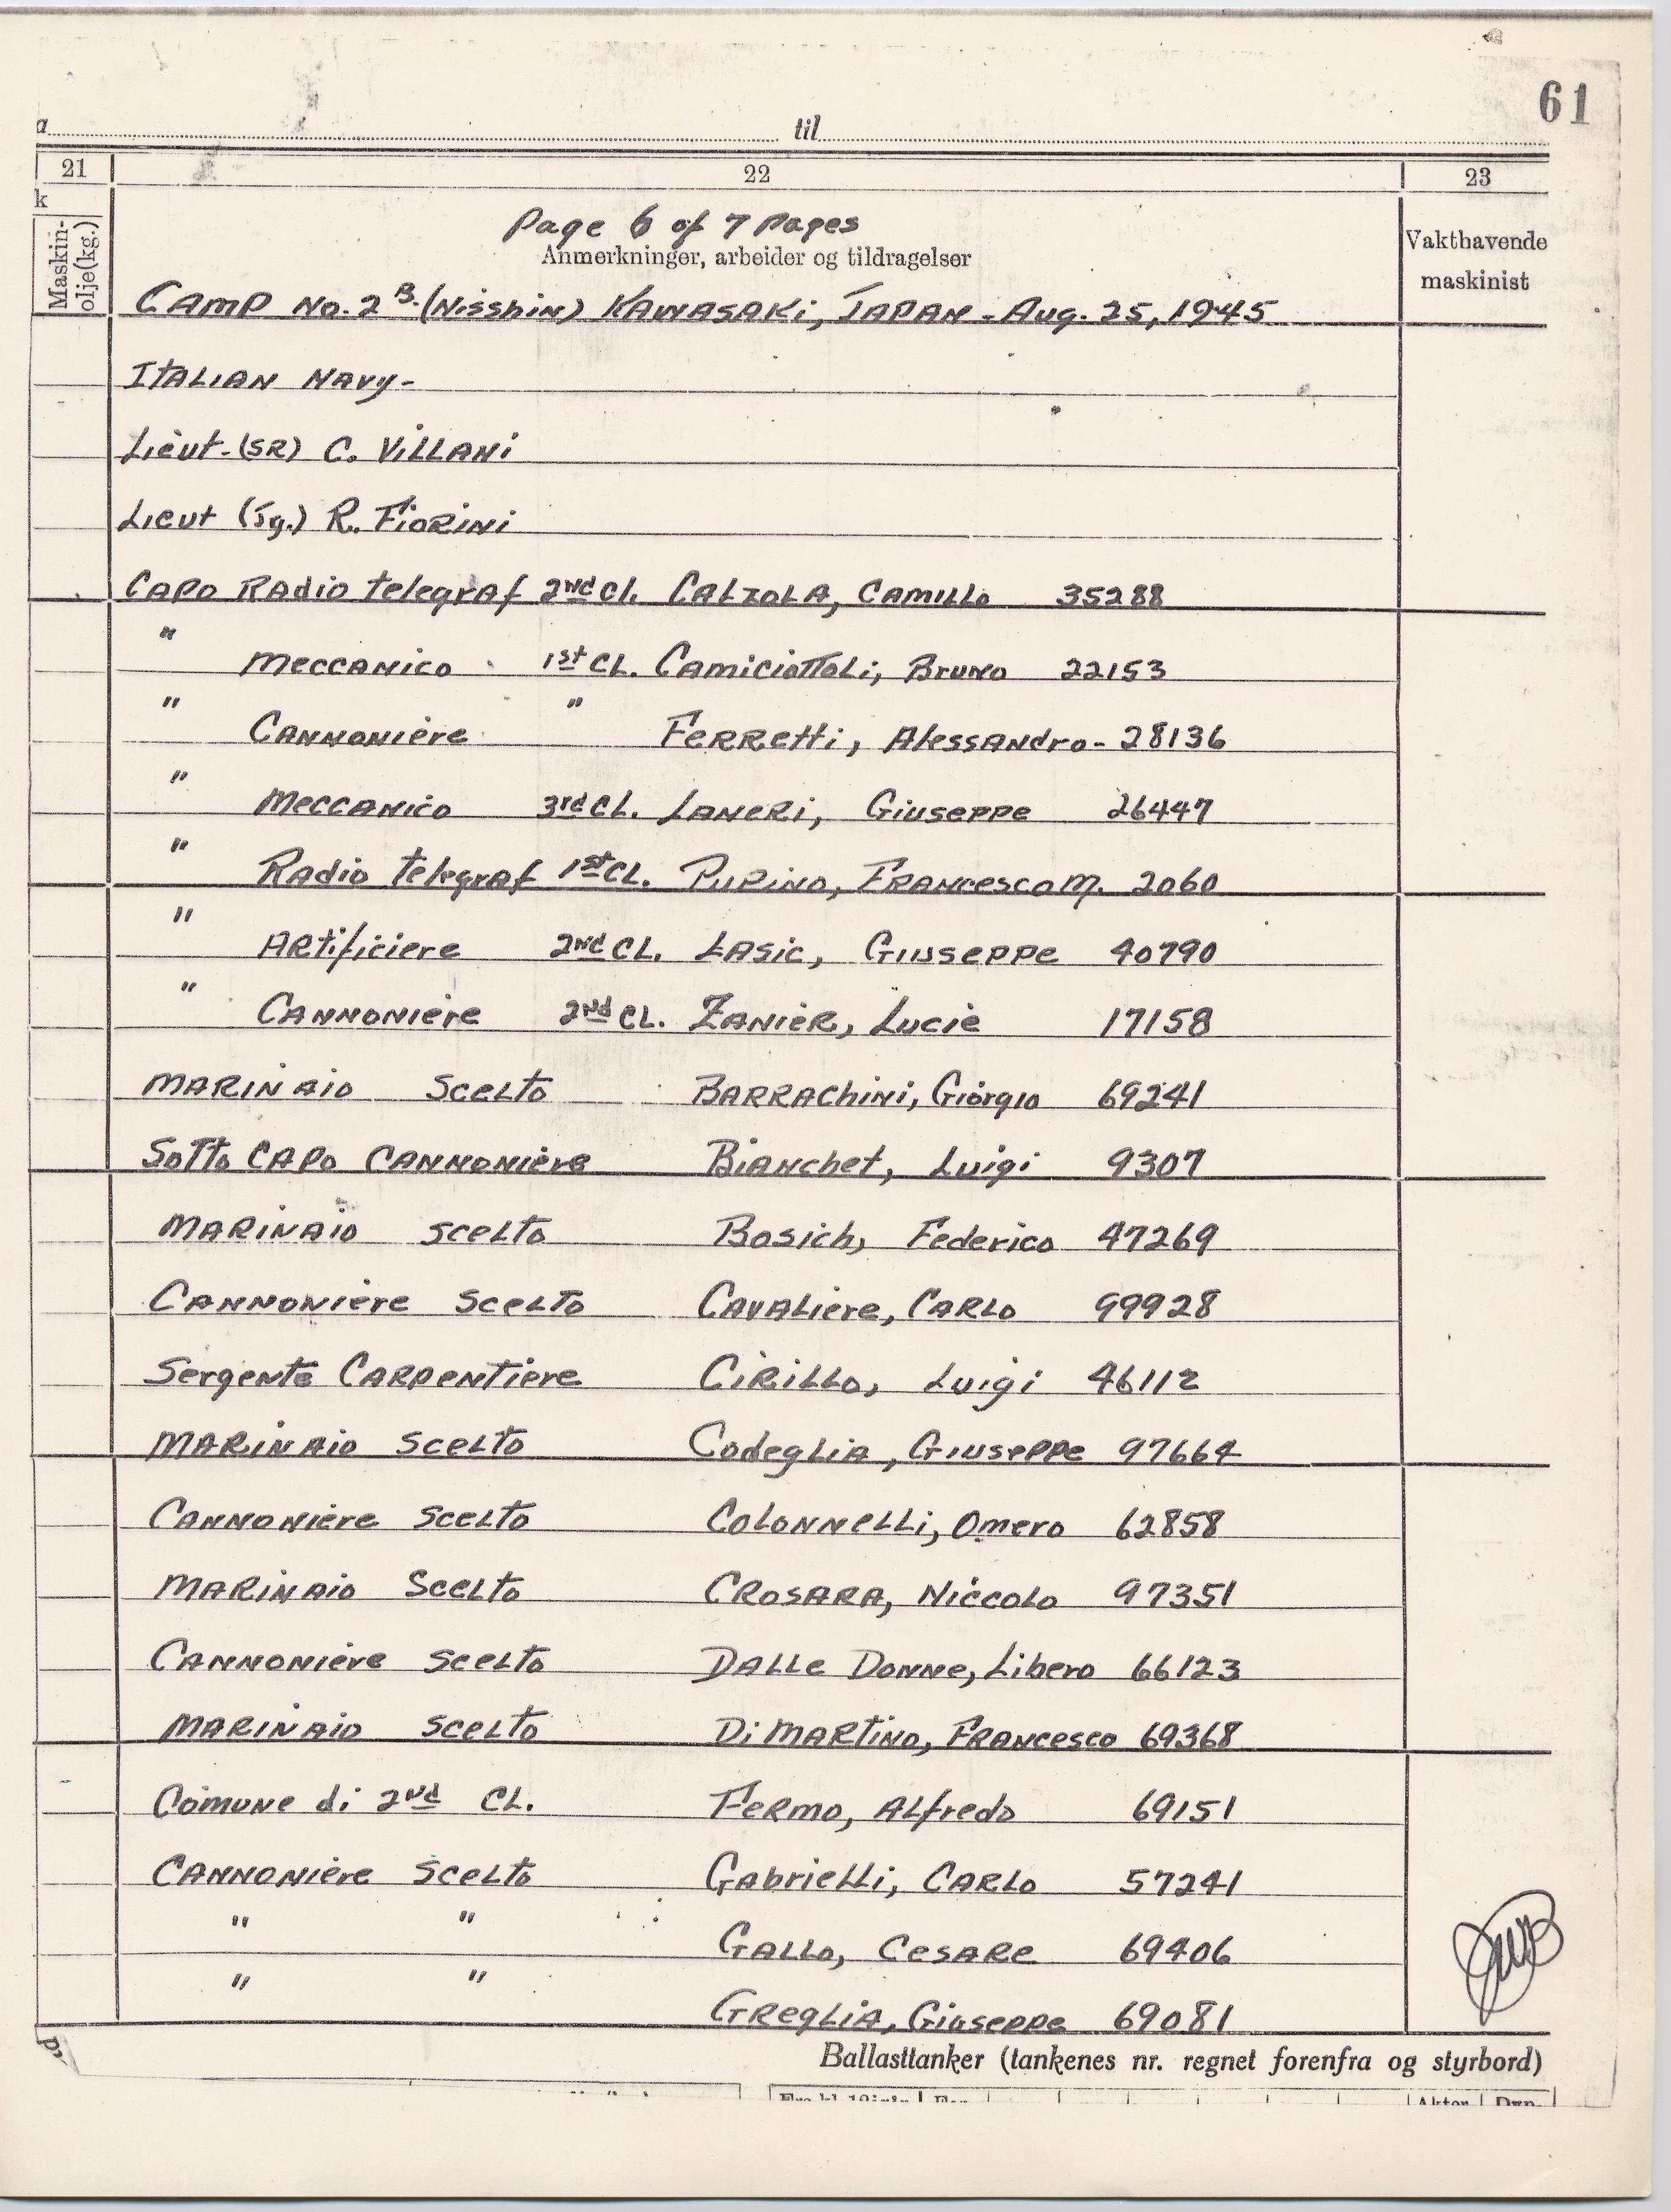 61
a til
21 22 23
k
Page 6 of 7 Pages
Maskin-
olje(kg.)
Anmerkninger, arbeider og tildragelser
Vakthavende
maskinist
Camp No. 2 B. (Nisshin) Kawasaki, Japan - Aug. 25, 1945
Italian Navy-
Lieut-(SR) C. Villani
Lieut (Jg.) R. Fiorini
Capo Radio telegraf 2nd Cl. Calzola, Camillo 35288
" Meccanico 1st CL. Camiciottoli, Bruno 22153
" Cannoniere " Ferretti, Alessandro- 28136
" Meccanico 3rd CL. Laneri, Giuseppe 26447
" Radio telegraf 1st CL. Purino, Francesco M. 2060
" Artificiere 2nd CL. Lasic, Giuseppe 40790
" Cannoniere 2nd CL. Zanier, Lucie 17158
Marinaio Scelto Barrachini, Giorgio 69241
Sotto Capo Cannoniere Bianchet, Luigi 9307
Marinaio Scelto Bosich, Federico 47269
Cannoniere Scelto Cavaliere, Carlo 99928
Sergente Carpentiere Cirillo, Luigi 46112
Marinaio Scelto Codeglia, Giuseppe 97664
Cannoniere Scelto Colonnelli, Omero 62858
Marinaio Scelto Crosara, Niccolo 97351
Cannoniere Scelto Dalle Donne, Libero 66123
Marinaio Scelto Di Martino, Francesco 69368
Comune di 2nd CL. Fermo, Alfredo 69151
Cannoniere Scelto Gabrielli, Carlo 57241
" " Gallo, Cesare 69406
" " Greglia, Giuseppe 69081
Ballasttanker (tankenes nr. regnet forenfra og styrbord)